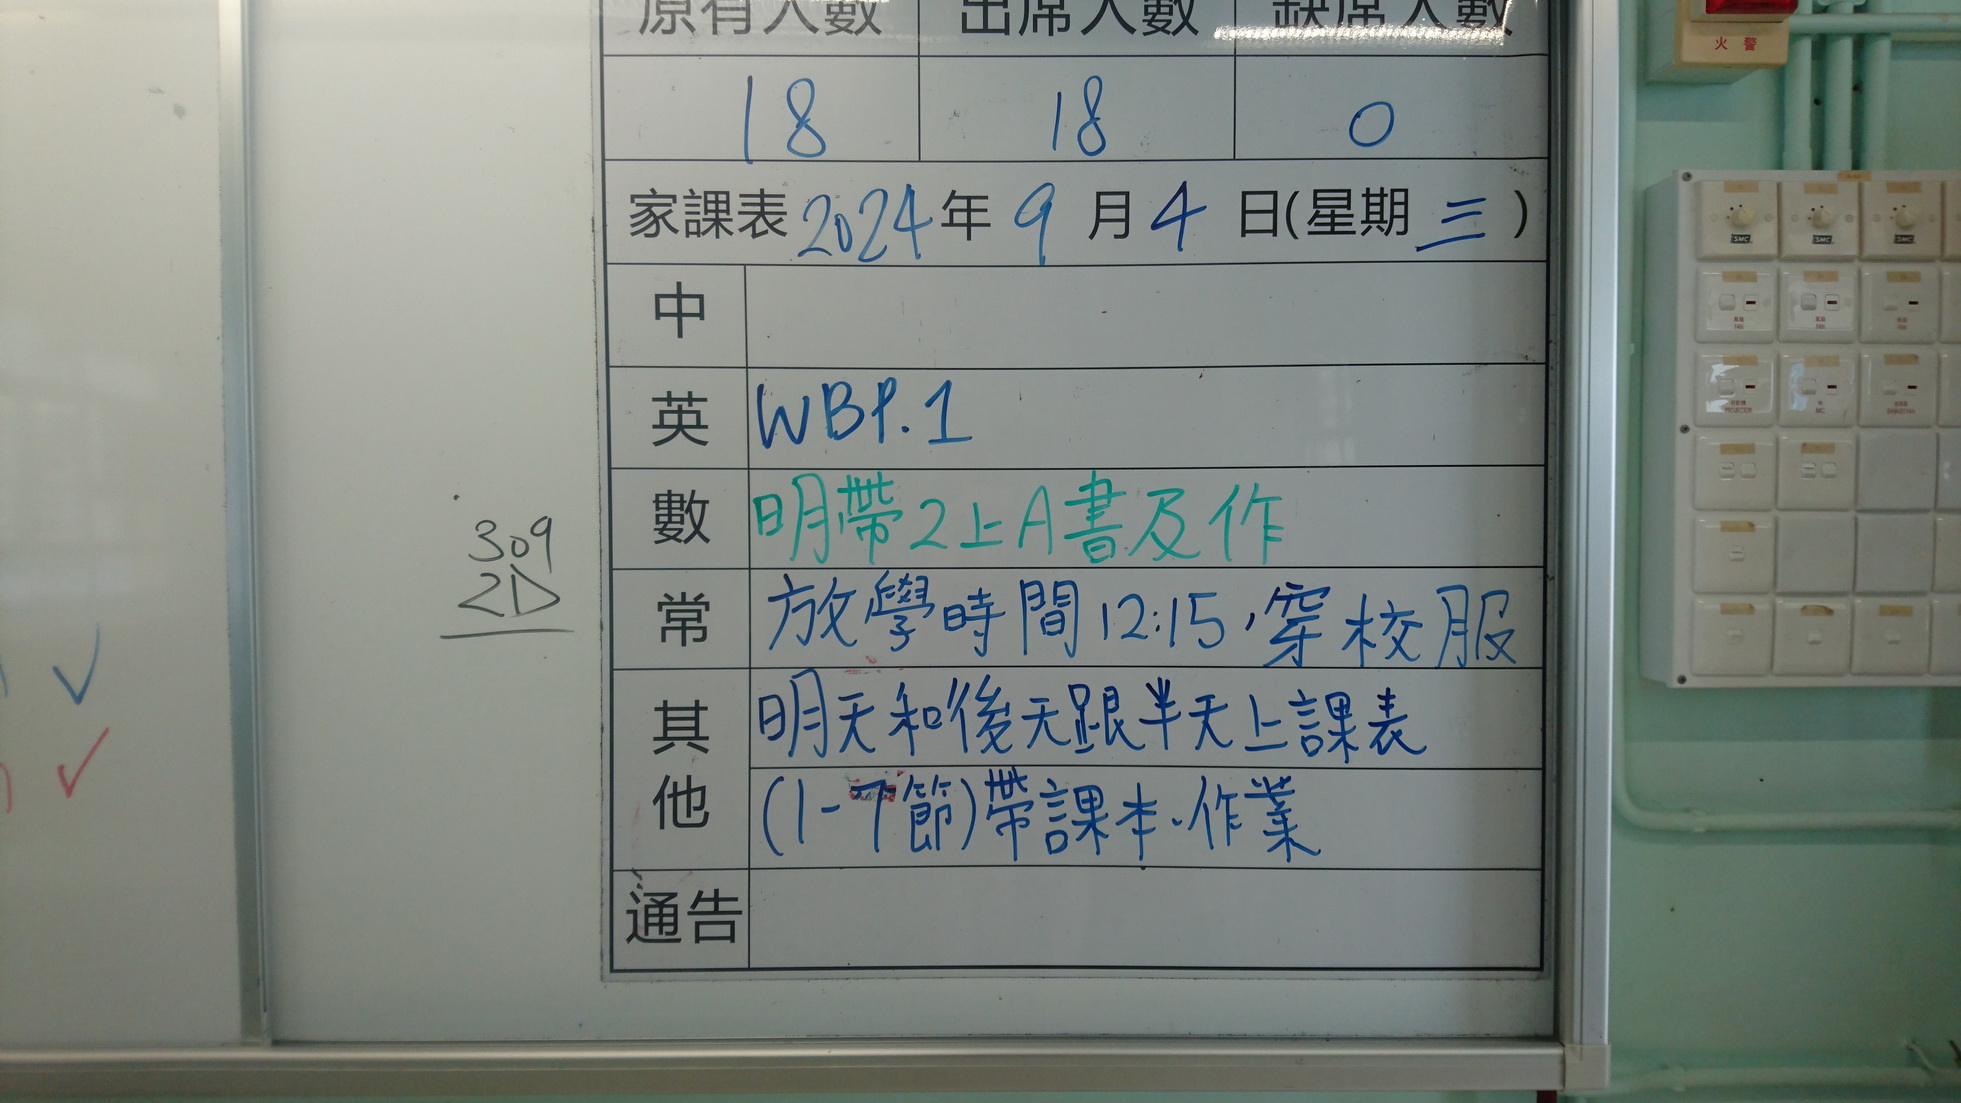 原有人數 出席人數 缺席人數
18 18 0
家課表2024年9月4日(星期三)
中
英 WBP.1
數 明帶2上A書及作
常 放學時間12:15,穿校服
其他 明天和後天跟半天上課表
(1-7節)帶課本、作業
通告
309
2D
火警
SMC SMC SMC
FAN FAN FAN
PROJECTOR MIC